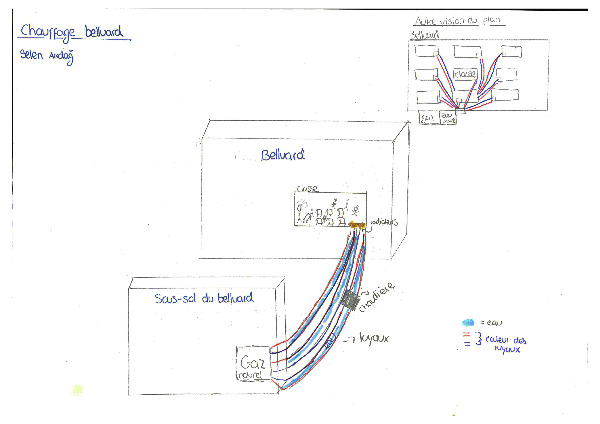 Chauffage bellvard
Selen Akdağ
Autre vision du plan
Bellvard
classe
Gaz
Bellvard
classe
radiateurs
chaudière
Sous-sol du bellvard
→ tuyaux
Gaz
naturel
= eau
= } couleur des
tuyaux